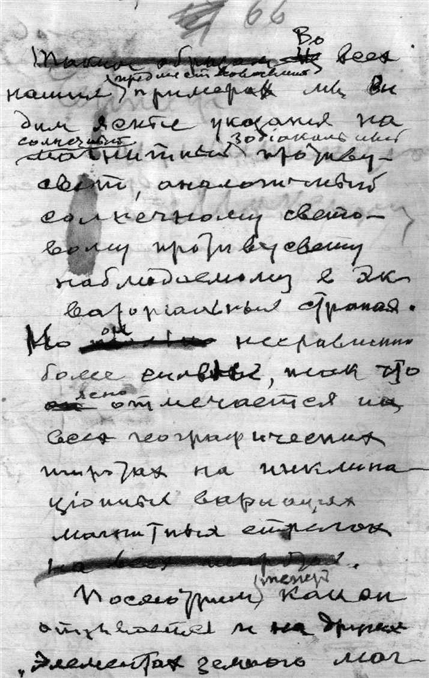 66
Таким образом Во всех
наших (предшествовавших) примерах мы ви
дим ясные указания на
солнечный зодіакальный
магнитный противу-
свет, аналогичный
солнечному свето-
вому противусвету
наблюдаемому в эк
ваторіальных странах.
Но он несравненно
более сильный, так что
ясно отмечается на
всех географических
широтах на инклина-
ціонных варіаціях
магнитных стрелок
на всех широтах.
Посмотрим (теперь) как он
отзывается и на других
„Элементах земного маг-